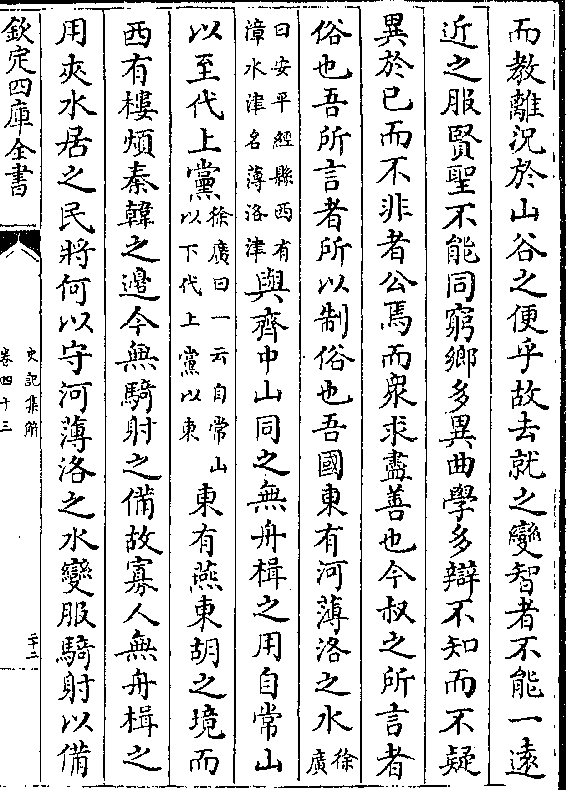 而教離況於山谷之便乎故去就之變智者不能一遠
近之服賢聖不能同窮鄉多異曲學多辯不知而不疑
異於己而不非者公焉而衆求盡善也今叔之所言者
俗也吾所言者所以制俗也吾國東有河薄洛之水徐廣
曰安平經縣西有漳水津名薄洛津與齊中山同之無舟楫之用自常山
以至代上黨徐廣曰一云自常山以下代上黨以東東有燕東胡之境而
西有樓煩秦韓之邊今無騎射之備故寡人無舟楫之
用夾水居之民將何以守河薄洛之水變服騎射以備
欽定四庫全書
史記集解
卷四十三
二十二